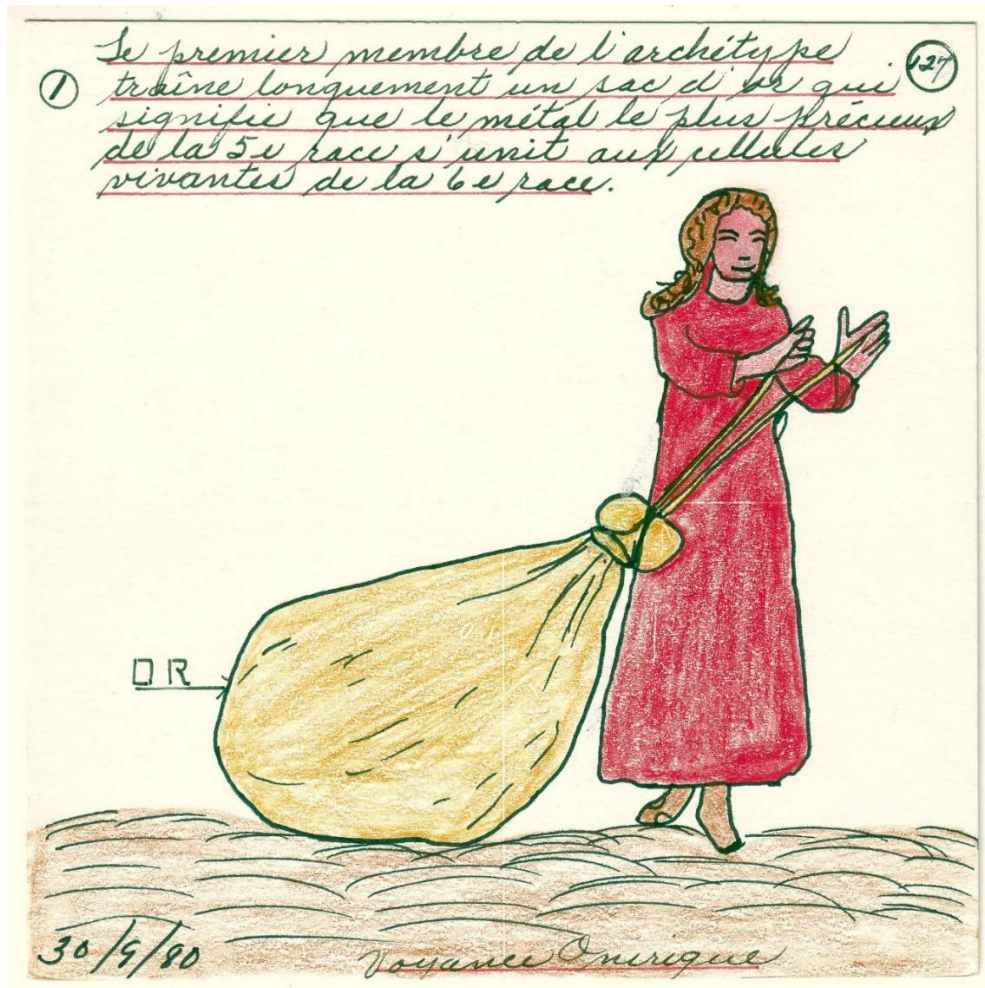 Le premier membre de l'archétype
① traîne longuement un sac d'or qui 127
signifie que le métal le plus précieux
de la 5e race s'unit aux cellules
vivantes de la 6e race.
OR
30/9/80
Voyance Onirique